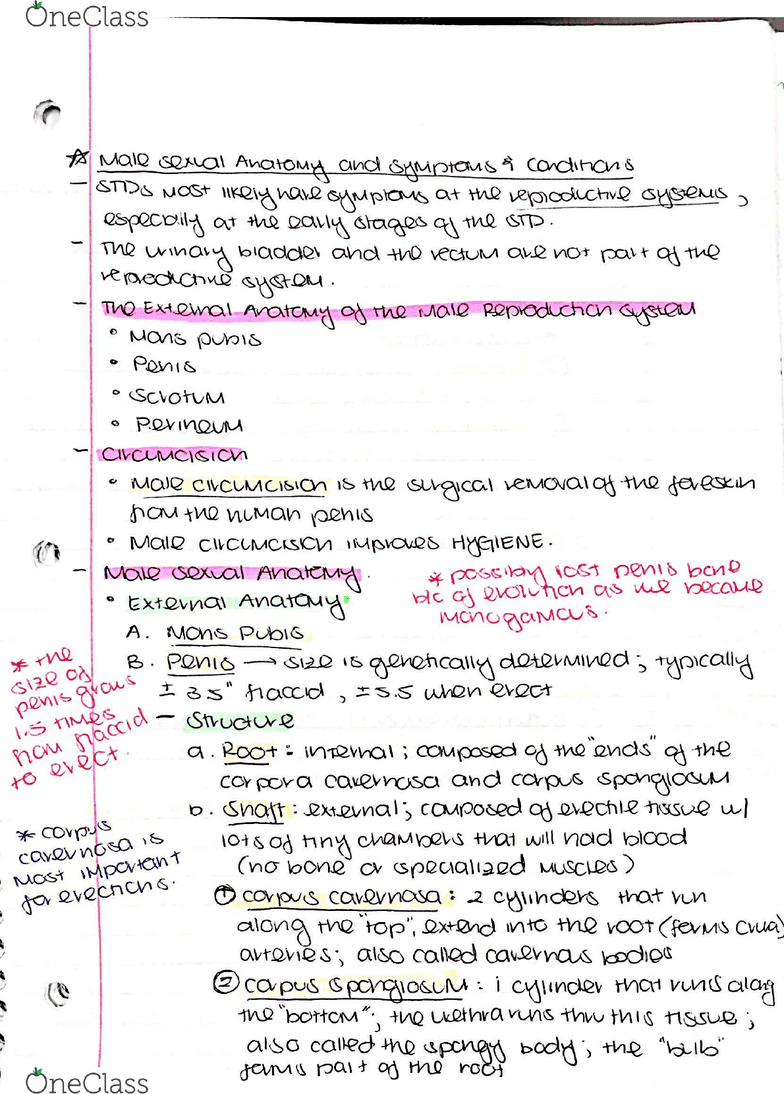 OneClass
☆ Male sexual Anatomy and symptoms & Conditions
- STDs most likely have symptoms at the reproductive systems,
especially at the early stages of the STD.
- The urinary bladder and the rectum are not part of the
reproductive system.
- The External Anatomy of the Male Reproduction System
• Mons pubis
• Penis
• Scrotum
• Perineum
- Circumcision
• Male circumcision is the surgical removal of the foreskin
from the human penis
• Male circumcision improves HYGIENE.
- Male sexual Anatomy.
* possibly lost penis bone
b/c of evolution as we became
monogamous.
• External Anatomy
A. Mons Pubis
B. Penis → size is genetically determined; typically
± 3.5" flaccid, ± 5.5 when erect
* the
size of
penis grows
1.5 times
from flaccid
to erect.
- Structure
a. Root: internal; composed of the "ends" of the
corpora cavernosa and corpus spongiosum
b. Shaft: external; composed of erectile tissue w/
lots of tiny chambers that will hold blood
(no bone or specialized muscles)
* corpus
cavernosa is
most important
for erections.
① corpus cavernosa: 2 cylinders that run
along the "top", extend into the root (forms crua)
arteries; also called cavernous bodies
② corpus spongiosum: 1 cylinder that runs along
the "bottom"; the urethra runs thru this tissue;
also called the spongy body; the "bulb"
forms part of the root
OneClass